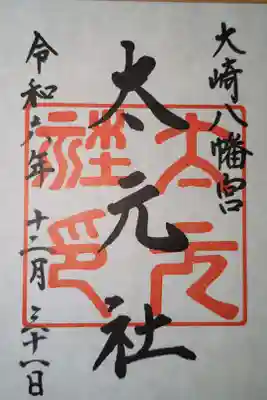 大崎八幡宮
太元社
令和六年 十二月 三十一日